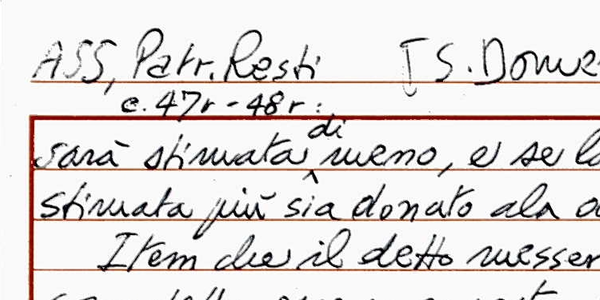 ASS, Patr. Resti [S. Dome
c. 47r - 48r :
di
sarà stimata meno, e se la
stimata più sia donato ala
Item che il detto messer